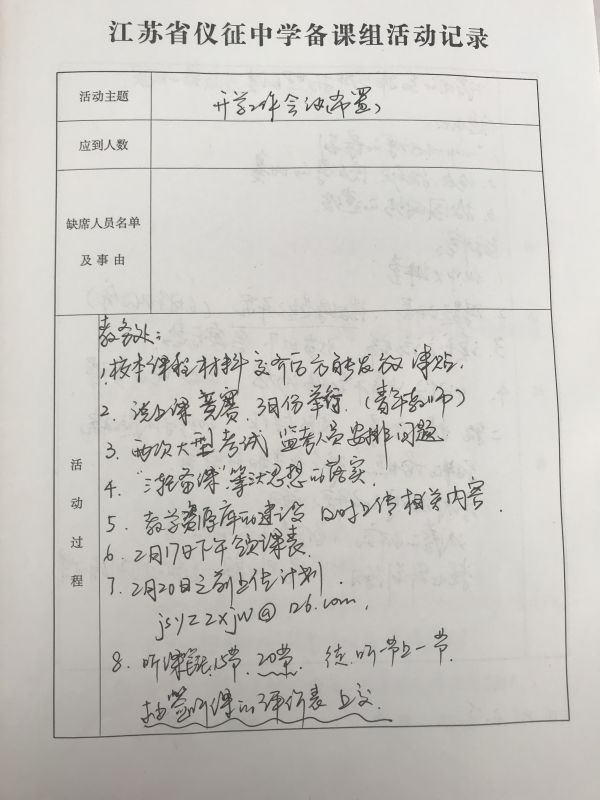 江苏省仪征中学备课组活动记录
活动主题
开学工作会议(布置)
应到人数
缺席人员名单
及事由
活动过程
教务处:
1. 校本课程材料交齐后方能发放津贴.
2. 说上课竞赛. 3月份举行. (青年教师)
3. 两次大型考试 监考人员安排问题
4. "三轮备课"等 思想的落实.
5. 教学资源库的建设 及时上传相关内容.
6. 2月17日下午领课表.
7. 2月20日之前上传计划.
jsyzzxjw@126.com,
8. 听课 15节. 20节. 徒. 听一节上一节.
听课的评价表上交.